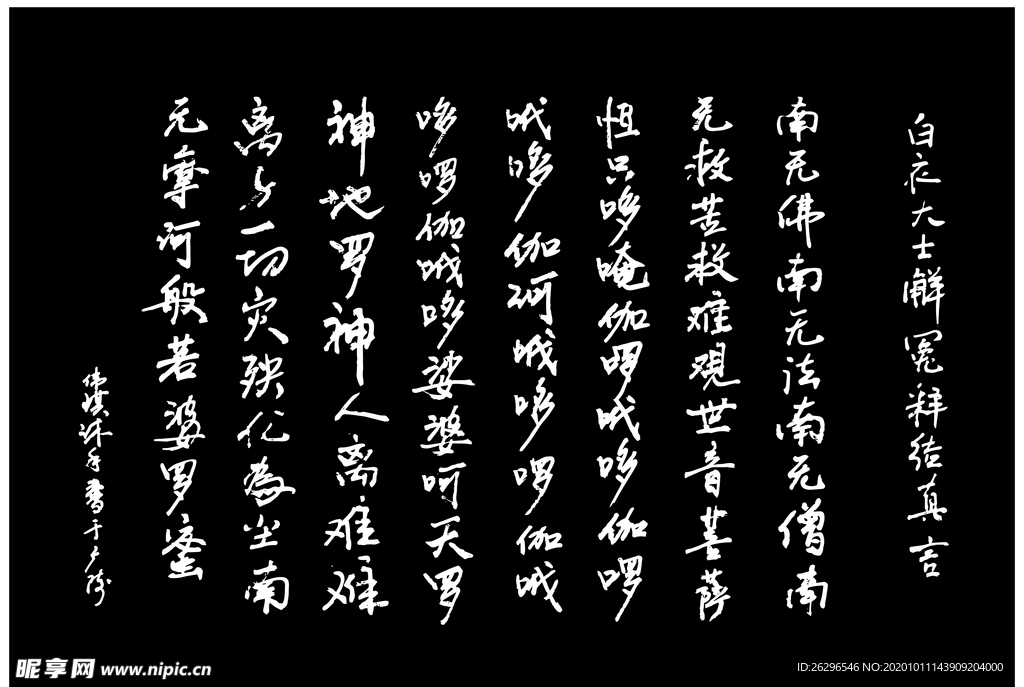 白衣大士解冤释结真言
南无佛南无法南无僧南
无救苦救难观世音菩萨
怛只哆唵伽啰哦哆伽啰
哦哆伽河哦哆啰伽哦
哆啰伽哦哆娑婆呵天罗
神地罗神人离难难
离身一切灾殃化为尘南
无摩诃般若波罗蜜
书于
昵享网 www.nipic.cn
ID:26296546 NO:20201011143909204000